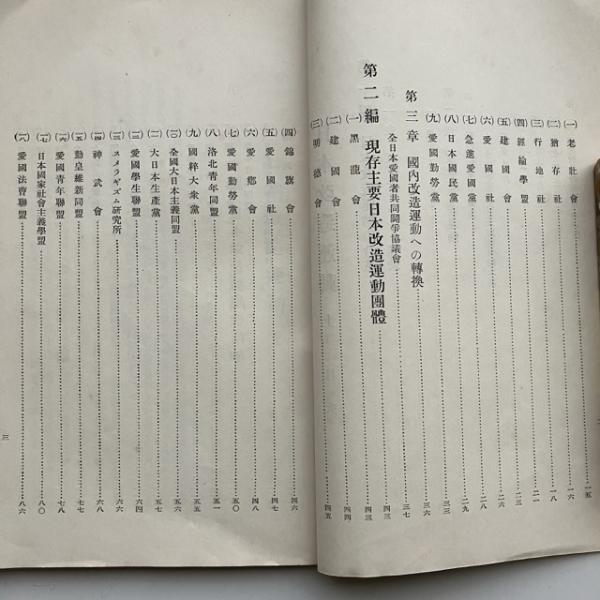 一五
(一) 老壯會……一六
(二) 猶存社……一八
(三) 行地社……二一
(四) 經綸學盟……二三
(五) 建國會……二六
(六) 愛國社……二八
(七) 急進愛國黨……二九
(八) 日本國民黨……三三
(九) 愛國勤勞黨……三六
第三章 國內改造運動への轉換……三七
全日本愛國者共同鬪爭協議會……四三
第二編 現存主要日本改造運動團體
(一) 黑龍會……四三
(二) 建國會……四四
(三) 明德會……四五
(四) 錦旗會……四六
(五) 愛國社……四七
(六) 愛鄉會……四八
(七) 愛國勤勞黨……五〇
(八) 洛北青年同盟……五一
(九) 國粹大衆黨……五五
(一〇) 全國大日本主義同盟……五六
(一一) 大日本生產黨……
(一二) 愛國學生聯盟……六四
(一三) スメラギズム研究所……六六
(一四) 神武會……六八
(一五) 勤皇維新同盟……七七
(一六) 愛國青年聯盟……七八
(一七) 日本國家社會主義學盟……八〇
(一八) 愛國法曹聯盟……八六
三